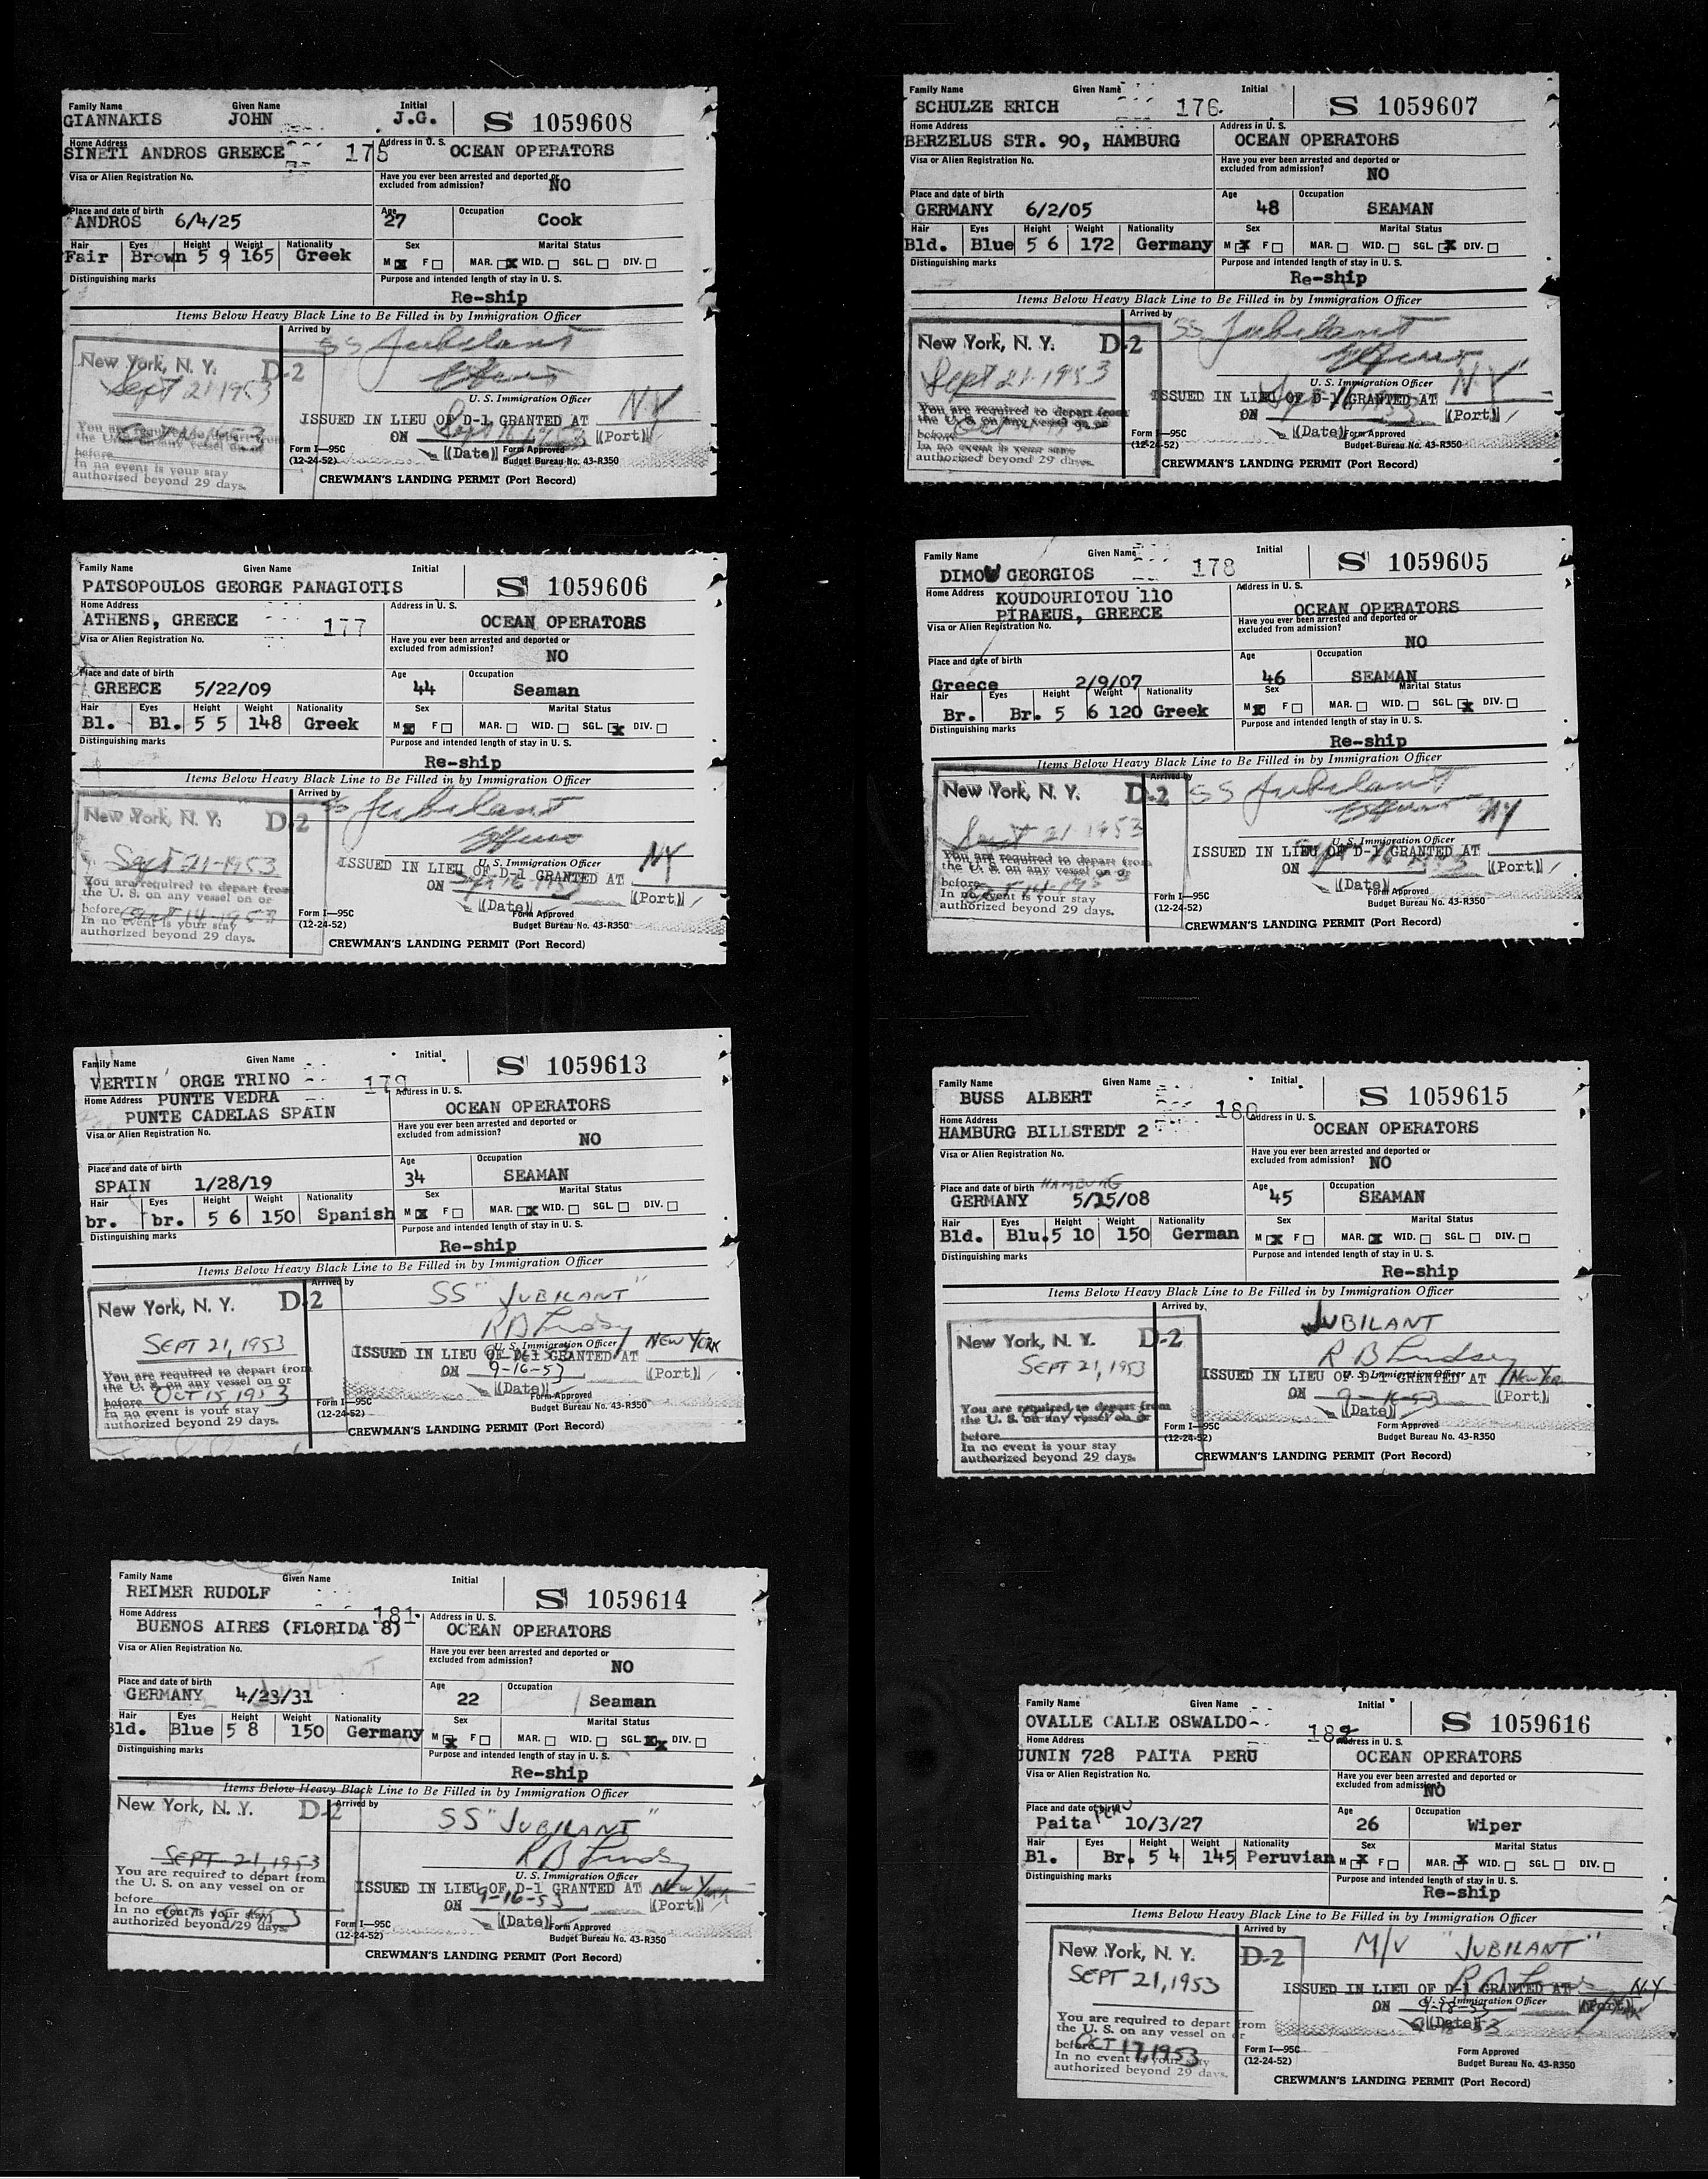 Family Name Given Name Initial
GIANNAKIS JOHN J.G. S 1059608
Home Address Address in U. S.
SINETI ANDROS GREECE 175 OCEAN OPERATORS
Visa or Alien Registration No. Have you ever been arrested and deported or excluded from admission? NO
Place and date of birth Age Occupation
ANDROS 6/4/25 27 Cook
Hair Eyes Height Weight Nationality Sex Marital Status
Fair Brown 5 9 165 Greek M F MAR. WID. SGL. DIV.
Distinguishing marks Purpose and intended length of stay in U. S.
Re-ship
Items Below Heavy Black Line to Be Filled in by Immigration Officer
Arrived by SS Jubilant
New York, N. Y. D-2
Sept 21 1953
U. S. Immigration Officer
ISSUED IN LIEU OF D-1 GRANTED AT N.Y
ON Sept 16 1953 (Port)
You are required to depart from
the U. S. on any vessel on or
before
In no event is your stay
authorized beyond 29 days.
(Date) Form Approved
Form I—95C
(12-24-52) Budget Bureau No. 43-R350
CREWMAN'S LANDING PERMIT (Port Record)
Family Name Given Name Initial
SCHULZE ERICH 176 S 1059607
Home Address Address in U. S.
BERZELUS STR. 90, HAMBURG OCEAN OPERATORS
Visa or Alien Registration No. Have you ever been arrested and deported or excluded from admission? NO
Place and date of birth Age Occupation
GERMANY 6/2/05 48 SEAMAN
Hair Eyes Height Weight Nationality Sex Marital Status
Bld. Blue 5 6 172 Germany M F MAR. WID. SGL. DIV.
Distinguishing marks Purpose and intended length of stay in U. S.
Re-ship
Items Below Heavy Black Line to Be Filled in by Immigration Officer
Arrived by SS Jubilant
New York, N. Y. D-2
Sept 21-1953
U. S. Immigration Officer
ISSUED IN LIEU OF D-1 GRANTED AT N.Y
ON Sept 16 1953 (Port)
You are required to depart from
the U. S. on any vessel on or
before
In no event is your stay
authorized beyond 29 days.
(Date) Form Approved
Form I—95C
(12-24-52) Budget Bureau No. 43-R350
CREWMAN'S LANDING PERMIT (Port Record)
Family Name Given Name Initial
PATSOPOULOS GEORGE PANAGIOTIS S 1059606
Home Address Address in U. S.
ATHENS, GREECE 177 OCEAN OPERATORS
Visa or Alien Registration No. Have you ever been arrested and deported or excluded from admission? NO
Place and date of birth Age Occupation
GREECE 5/22/09 44 Seaman
Hair Eyes Height Weight Nationality Sex Marital Status
Bl. Bl. 5 5 148 Greek M F MAR. WID. SGL. DIV.
Distinguishing marks Purpose and intended length of stay in U. S.
Re-ship
Items Below Heavy Black Line to Be Filled in by Immigration Officer
Arrived by SS Jubilant
New York, N. Y. D-2
Sept 21-1953
U. S. Immigration Officer
ISSUED IN LIEU OF D-1 GRANTED AT NY
ON Sept 16 1953 (Port)
You are required to depart from
the U. S. on any vessel on or
before Oct 14-1953
In no event is your stay
authorized beyond 29 days.
(Date) Form Approved
Form I—95C
(12-24-52) Budget Bureau No. 43-R350
CREWMAN'S LANDING PERMIT (Port Record)
Family Name Given Name Initial
DIMOU GEORGIOS 178 S 1059605
Home Address Address in U. S.
KOUDOURIOTOU 110
PIRAEUS, GREECE OCEAN OPERATORS
Visa or Alien Registration No. Have you ever been arrested and deported or excluded from admission? NO
Place and date of birth Age Occupation
Greece 2/9/07 46 SEAMAN
Hair Eyes Height Weight Nationality Sex Marital Status
Br. Br. 5 6 120 Greek M F MAR. WID. SGL. DIV.
Distinguishing marks Purpose and intended length of stay in U. S.
Re-ship
Items Below Heavy Black Line to Be Filled in by Immigration Officer
Arrived by SS Jubilant
New York, N. Y. D-2 NY
Sept 21-1953
U. S. Immigration Officer
ISSUED IN LIEU OF D-1 GRANTED AT
ON (Port)
You are required to depart from
the U. S. on any vessel on or
before Oct 14-1953
In no event is your stay
authorized beyond 29 days.
(Date) Form Approved
Form I—95C
(12-24-52) Budget Bureau No. 43-R350
CREWMAN'S LANDING PERMIT (Port Record)
Family Name Given Name Initial
VERTIN ORGE TRINO 179 S 1059613
Home Address PUNTE VEDRA Address in U. S.
PUNTE CADELAS SPAIN OCEAN OPERATORS
Visa or Alien Registration No. Have you ever been arrested and deported or excluded from admission? NO
Place and date of birth Age Occupation
SPAIN 1/28/19 34 SEAMAN
Hair Eyes Height Weight Nationality Sex Marital Status
br. br. 5 6 150 Spanish M F MAR. WID. SGL. DIV.
Distinguishing marks Purpose and intended length of stay in U. S.
Re-ship
Items Below Heavy Black Line to Be Filled in by Immigration Officer
Arrived by SS "JUBILANT"
New York, N. Y. D-2
R B Lindsey
SEPT 21, 1953
U. S. Immigration Officer
ISSUED IN LIEU OF D-1 GRANTED AT NEW YORK
ON 9-16-53 (Port)
You are required to depart from
the U. S. on any vessel on or
before OCT 15, 1953
In no event is your stay
authorized beyond 29 days.
(Date) Form Approved
Form I—95C
(12-24-52) Budget Bureau No. 43-R350
CREWMAN'S LANDING PERMIT (Port Record)
Family Name Given Name Initial
BUSS ALBERT 180 S 1059615
Home Address Address in U. S.
HAMBURG BILLSTEDT 2 OCEAN OPERATORS
Visa or Alien Registration No. Have you ever been arrested and deported or excluded from admission? NO
Place and date of birth HAMBURG Age Occupation
GERMANY 5/15/08 45 SEAMAN
Hair Eyes Height Weight Nationality Sex Marital Status
Bld. Blu. 5 10 150 German M F MAR. WID. SGL. DIV.
Distinguishing marks Purpose and intended length of stay in U. S.
Re-ship
Items Below Heavy Black Line to Be Filled in by Immigration Officer
Arrived by JUBILANT
New York, N. Y. D-2
R B Lindsey
SEPT 21, 1953
U. S. Immigration Officer
ISSUED IN LIEU OF D-1 GRANTED AT New York
ON 9-16-53 (Port)
You are required to depart from
the U. S. on any vessel on or
before
In no event is your stay
authorized beyond 29 days.
(Date) Form Approved
Form I—95C
(12-24-52) Budget Bureau No. 43-R350
CREWMAN'S LANDING PERMIT (Port Record)
Family Name Given Name Initial
REIMER RUDOLF S 1059614
Home Address 181 Address in U. S.
BUENOS AIRES (FLORIDA 8) OCEAN OPERATORS
Visa or Alien Registration No. Have you ever been arrested and deported or excluded from admission? NO
Place and date of birth Age Occupation
GERMANY 4/23/31 22 Seaman
Hair Eyes Height Weight Nationality Sex Marital Status
Bld. Blue 5 8 150 Germany M F MAR. WID. SGL. DIV.
Distinguishing marks Purpose and intended length of stay in U. S.
Re-ship
Items Below Heavy Black Line to Be Filled in by Immigration Officer
Arrived by SS "JUBILANT"
New York, N. Y. D-2
R B Lindsey
SEPT 21, 1953
U. S. Immigration Officer
ISSUED IN LIEU OF D-1 GRANTED AT New York
ON 9-16-53 (Port)
You are required to depart from
the U. S. on any vessel on or
before
In no event is your stay
authorized beyond 29 days.
(Date) Form Approved
Form I—95C
(12-24-52) Budget Bureau No. 43-R350
CREWMAN'S LANDING PERMIT (Port Record)
Family Name Given Name Initial
OVALLE CALLE OSWALDO 182 S 1059616
Home Address Address in U. S.
JUNIN 728 PAITA PERU OCEAN OPERATORS
Visa or Alien Registration No. Have you ever been arrested and deported or excluded from admission? NO
Place and date of birth PERU Age Occupation
Paita 10/3/27 26 Wiper
Hair Eyes Height Weight Nationality Sex Marital Status
Bl. Br. 5 4 145 Peruvian M F MAR. WID. SGL. DIV.
Distinguishing marks Purpose and intended length of stay in U. S.
Re-ship
Items Below Heavy Black Line to Be Filled in by Immigration Officer
Arrived by M/V "JUBILANT"
New York, N. Y. D-2
SEPT 21, 1953
ISSUED IN LIEU OF D-1 GRANTED AT N.Y.
ON 9-18-53 U. S. Immigration Officer (Port)
You are required to depart from
the U. S. on any vessel on or
before OCT 17, 1953
In no event is your stay
authorized beyond 29 days.
(Date)
Form I—95C Form Approved
(12-24-52) Budget Bureau No. 43-R350
CREWMAN'S LANDING PERMIT (Port Record)